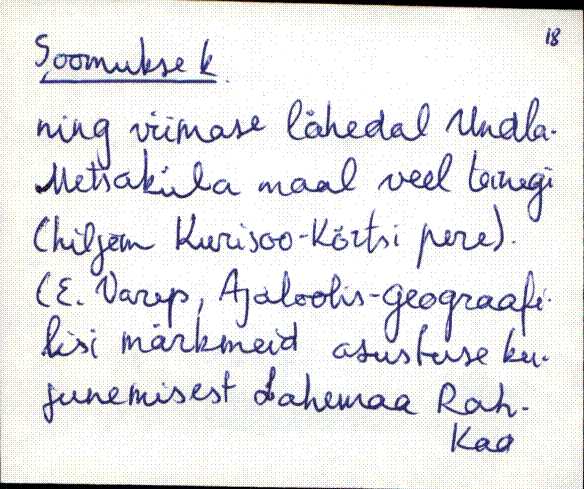 18
Soomukse k.
ning viimase lähedal Undla-
Metsaküla maal veel teinegi
(hiljem Kurisoo-Kõrtsi pere).
(E. Varep, Ajaloolis-geograafi-
lisi märkmeid asustuse ku-
junemisest Lahemaa Rah-
Kaa